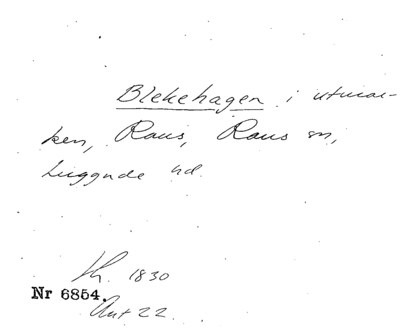 Blekehagen i utmar-
ken, Raus, Raus sn,
Luggude hd.
1830
Nr 6854.
Akt 22.